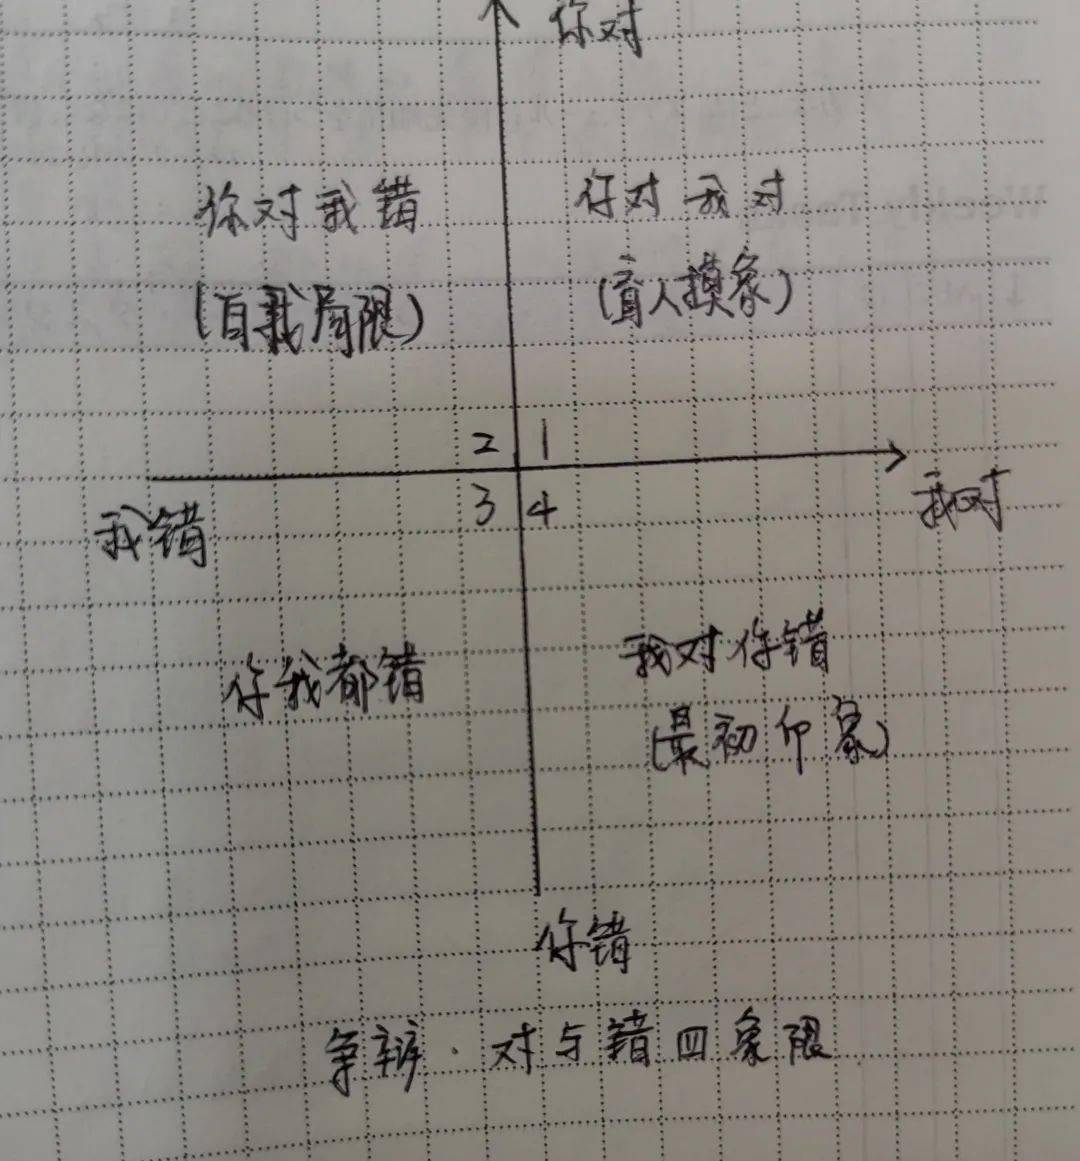 你对
你对我错
你对我对
(自我局限)
(盲人摸象)
2
1
3
4
我错
我对
你我都错
我对你错
(最初印象)
你错
争辩·对与错四象限